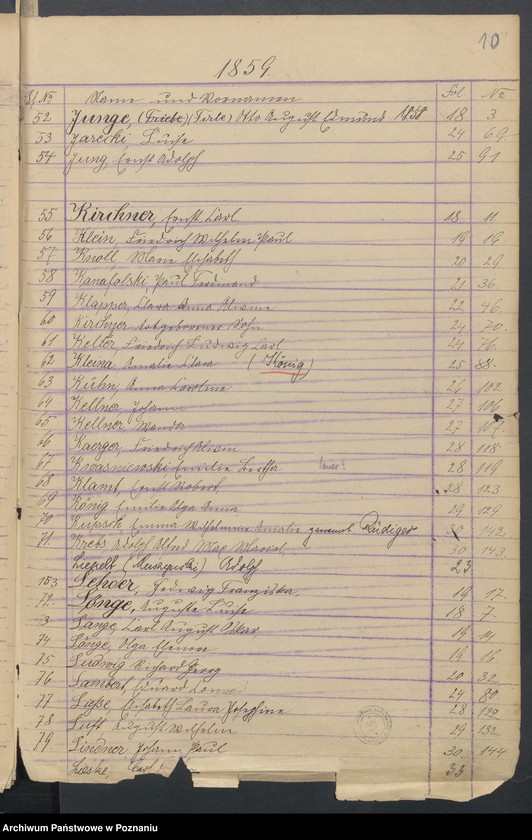 10
1859.
Name und Vornamen Fol No
52 Junge, (Triebe) (Tirle) Otto August Edmund 1858 18 3
53 Jarecki, Luise 24 69
54 Jung, Ernst Adolph 25 91
55 Kirchner, Ernst Carl. 18 11
56 Klein, Friedrich Wilhelm Paul 19 19
57 Knoll, Marie Elisabeth 20 29
58 Kanafolski, Paul Ferdinand 21 36
59 Klapper, Clara Anna Alwine 22 46
60 Kirchner, todtgeborener Sohn 24 70
61 Keller, Friedrich Ludwig Carl 24 76
62 Kleina, Amalie Clara (König) 25 88
63 Kühn, Anna Caroline 26 102
64 Kellner, Johann 27 106
65 Kellner, Wanda 27 107
66 Kaerger, Friedrich Alwin 28 118
67 Kwasniewski Emilie Bertha 28 119
68 Klamt, Ernst Robert 28 123
69 König, Emilie Olga Anna 29 129
70 Kupsch Emma Wilhelmine Amalie genannt Rüdiger 30 142
71 Krebs Adolph Alfred Max 30 143
Liepelt Adolph 23
153 Lehder, Hedwig Franziska 19 17
72 Lange, Auguste Luise 18 7
3 Lange, Carl August Oskar 19 14
74 Lange, Olga Elenore 19 16
75 Ludwig Richard Georg 20 32
76 Lambert, Eduard 24 80
77 Liese, Elisabeth Laura Josephine 28 122
78 Luft August Wilhelm 29 132
79 Lindner, Johann Paul 30 144
Lieske, Carl 33
Archiwum Państwowe w Poznaniu